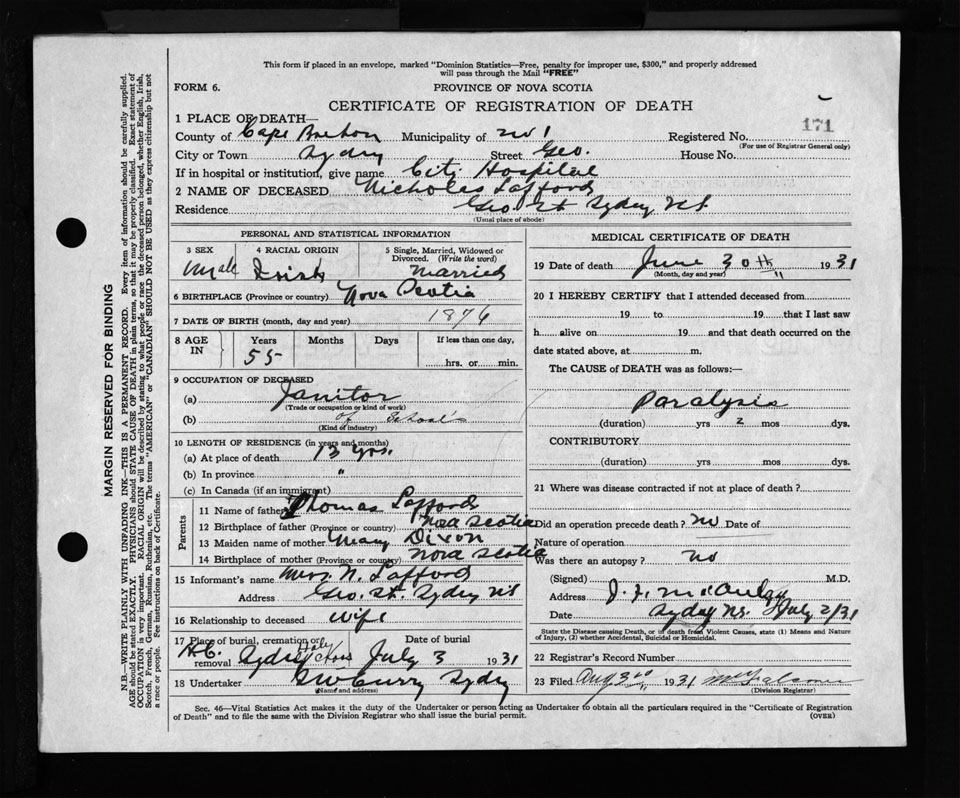 This form if placed in an envelope, marked "Dominion Statistics—Free, penalty for improper use, $300," and properly addressed
will pass through the Mail "FREE"
FORM 6.
PROVINCE OF NOVA SCOTIA
CERTIFICATE OF REGISTRATION OF DEATH
171
1 PLACE OF DEATH—
County of Cape Breton Municipality of No 1 Registered No.
(For use of Registrar General only)
City or Town Sydney Street Geo. House No.
If in hospital or institution, give name City Hospital
2 NAME OF DECEASED Nicholas Lafford
Residence Geo. St Sydney N.S.
(Usual place of abode)
PERSONAL AND STATISTICAL INFORMATION
3 SEX 4 RACIAL ORIGIN 5 Single, Married, Widowed or
Divorced. (Write the word)
Male Irish Married
6 BIRTHPLACE (Province or country) Nova Scotia
7 DATE OF BIRTH (month, day and year) 1876
8 AGE IN Years Months Days If less than one day,
55 hrs. or min.
9 OCCUPATION OF DECEASED
(a) Janitor
(Trade or occupation or kind of work)
(b) of Schools
(Kind of industry)
10 LENGTH OF RESIDENCE (in years and months)
(a) At place of death 13 yrs.
(b) In province "
(c) In Canada (if an immigrant)
Parents
11 Name of father Thomas Lafford
12 Birthplace of father (Province or country) Nova Scotia
13 Maiden name of mother Mary Dixon
14 Birthplace of mother (Province or country) Nova Scotia
15 Informant's name Mrs. N. Lafford
Address Geo. St. Sydney N.S
16 Relationship to deceased wife
17 Place of burial, cremation or Date of burial
removal R.C. Sydney Holy Cross July 3 1931
18 Undertaker Curry Sydney
(Name and address)
MEDICAL CERTIFICATE OF DEATH
19 Date of death June 30th 1931
(Month, day and year)
20 I HEREBY CERTIFY that I attended deceased from
19 to 19 that I last saw
h alive on 19 and that death occurred on the
date stated above, at m.
The CAUSE of DEATH was as follows:—
Paralysis
(duration) yrs 2 mos dys.
CONTRIBUTORY
(duration) yrs mos dys.
21 Where was disease contracted if not at place of death?
Did an operation precede death? no Date of
Nature of operation
Was there an autopsy? no
(Signed) M.D.
Address J. J. McAulay
Date Sydney N.S. July 2/31
State the Disease causing Death, or in death from Violent Causes, state (1) Means and Nature
of Injury, (2) whether Accidental, Suicidal or Homicidal.
22 Registrar's Record Number
23 Filed Aug 3rd 1931
(Division Registrar)
Sec. 46—Vital Statistics Act makes it the duty of the Undertaker or person acting as Undertaker to obtain all the particulars required in the "Certificate of Registration
of Death" and to file the same with the Division Registrar who shall issue the burial permit.
(OVER)
MARGIN RESERVED FOR BINDING
N.B.—WRITE PLAINLY WITH UNFADING INK—THIS IS A PERMANENT RECORD. Every item of information should be carefully supplied.
AGE should be stated EXACTLY. PHYSICIANS should STATE CAUSE OF DEATH in plain terms, so that it may be properly classified. Exact statement of
OCCUPATION is very important. RACIAL ORIGIN will be described by stating to what people or race the deceased person belonged, whether English, Irish,
Scotch, French, German, Russian, Ruthenian, etc. The terms "AMERICAN" or "CANADIAN" SHOULD NOT BE USED as they express citizenship but not
a race or people. See instructions on back of Certificate.